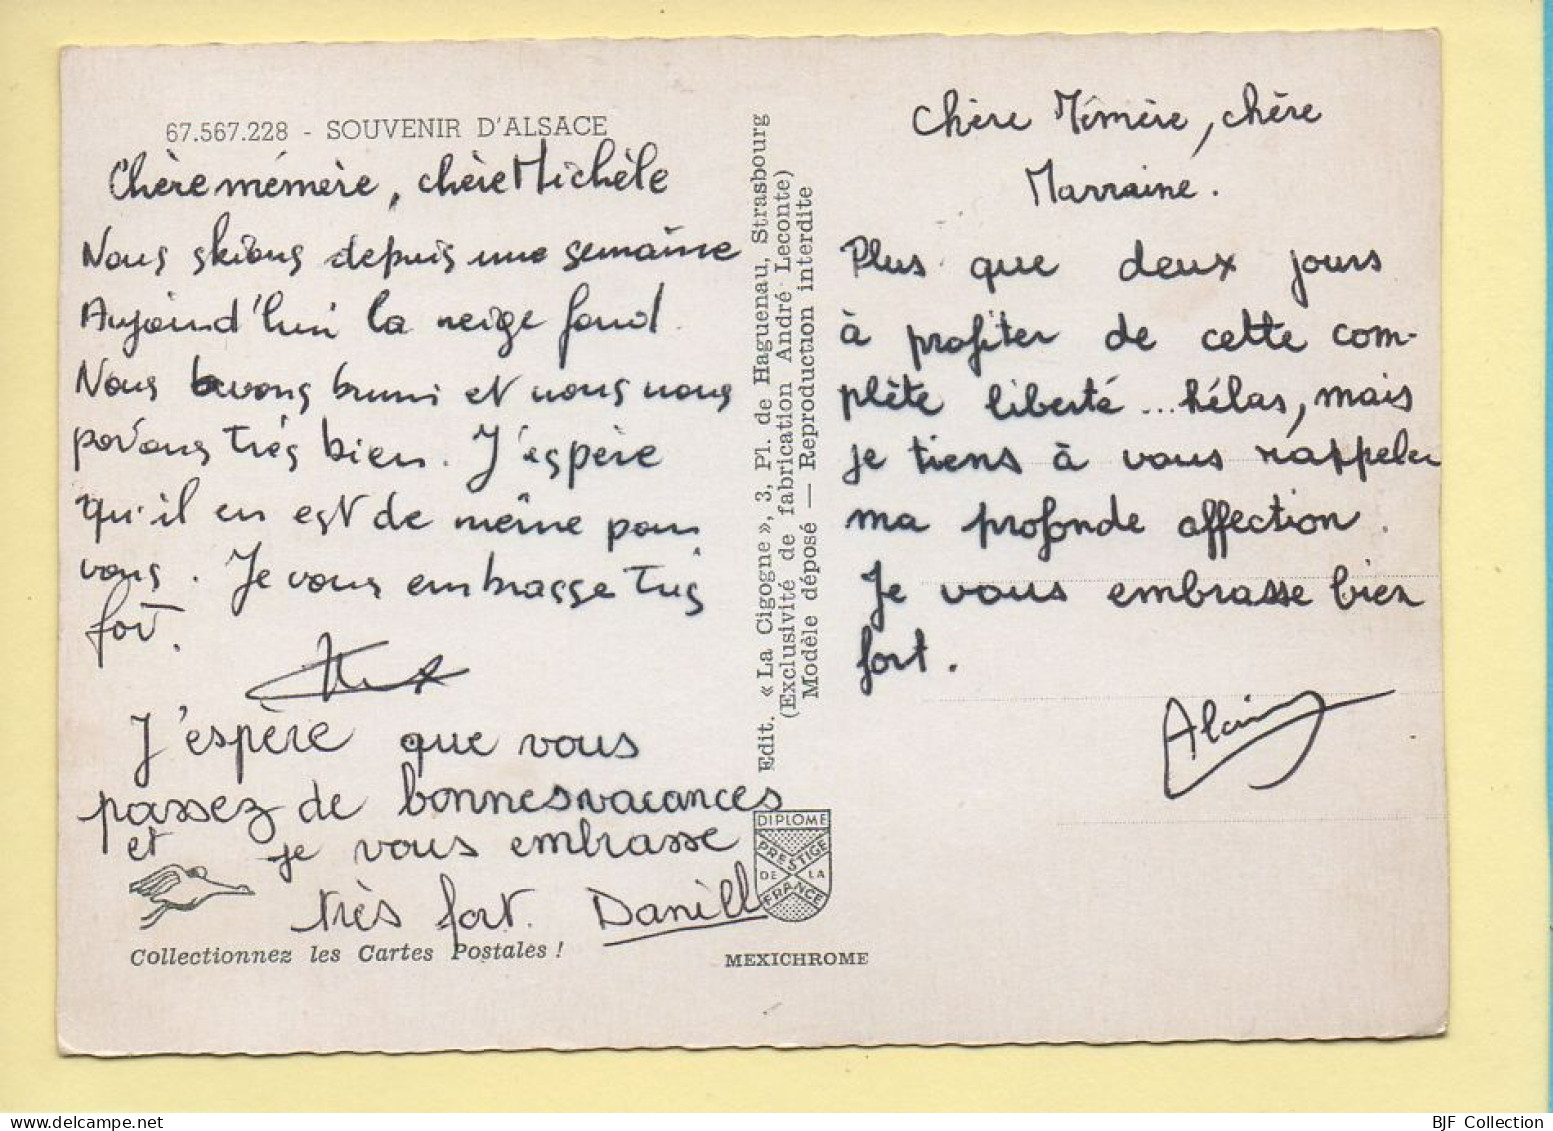 67.567.228 - SOUVENIR D'ALSACE
Chère mémère, chère Michèle
Nous skions depuis une semaine
Aujourd'hui la neige fond.
Nous avons bruni et nous nous
portons très bien. J'espère
qu'il en est de même pour
vous. Je vous embrasse très
fort.
J'espère que vous
passez de bonnes vacances
et je vous embrasse
très fort. Daniell
Collectionnez les Cartes Postales !
Edit. « La Cigogne », 3, Pl. de Haguenau, Strasbourg
(Exclusivité de fabrication André Leconte)
Modèle déposé — Reproduction interdite
DIPLOME
PRESTIGE
DE LA
FRANCE
MEXICHROME
Chère Mémère, chère
Marraine.
Plus que deux jours
à profiter de cette com-
plète liberté ... hélas, mais
je tiens à vous rappeler
ma profonde affection.
Je vous embrasse bien
fort.
Alain
BJF Collection